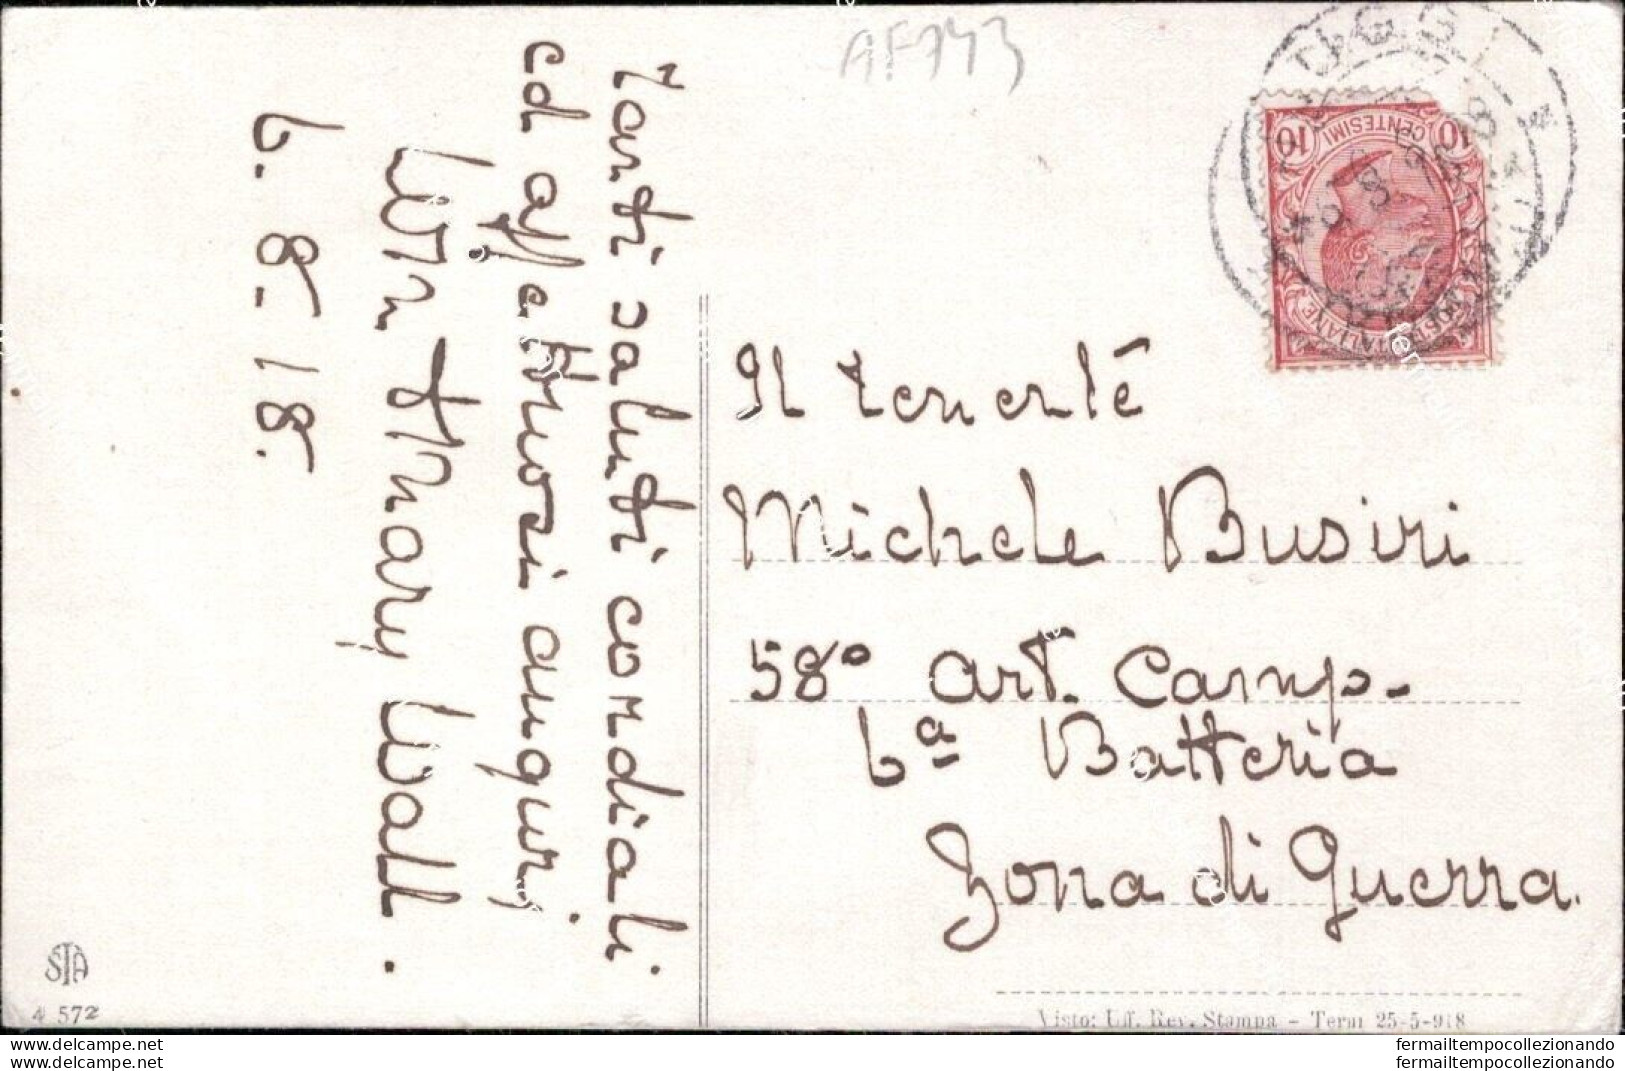 AF743
Tanti saluti cordiali
ed affettuosi auguri
Mary Wall.
6. 8. 18.
Il tenente
Michele Busiri
58° Art. Camp.
6ª Batteria
Zona di Guerra.
10 CENTESIMI 10
POSTE ITALIANE
STA
4 572
Visto: Uff. Rev. Stampa - Terni 25-5-918
www.delcampe.net
fermailtempocollezionando
www.delcampe.net
fermailtempocollezionando